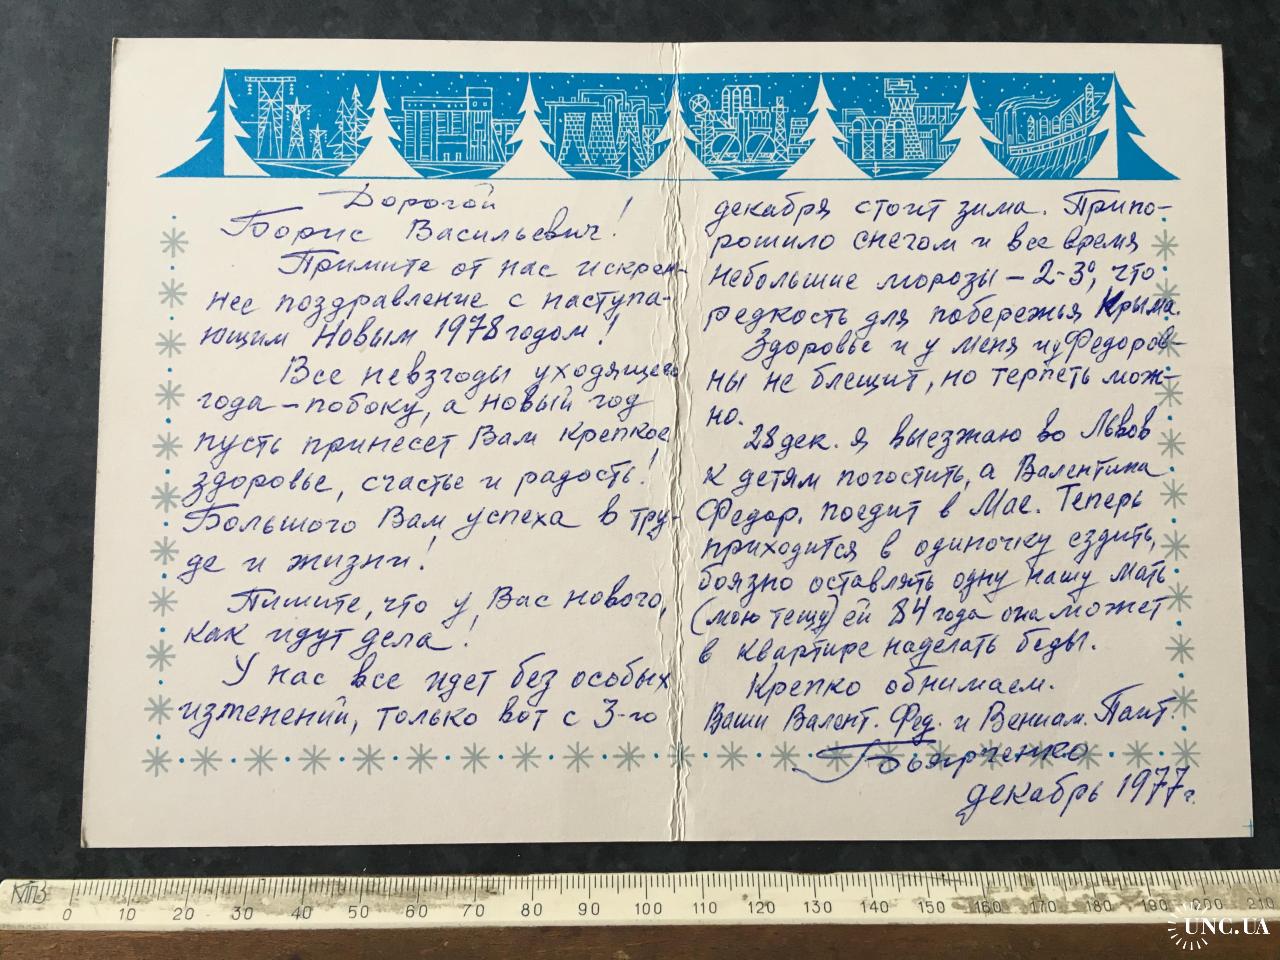 Дорогой
Борис Васильевич!
Примите от нас искрен-
нее поздравление с наступа-
ющим Новым 1978 годом!
Все невзгоды уходящего
года – побоку, а новый год
пусть принесет Вам крепкое
здоровье, счастье и радость!
Большого Вам успеха в тру-
де и жизни!
Пишите, что у Вас нового,
как идут дела!
У нас все идет без особых
изменений, только вот с 3-го
декабря стоит зима. Припо-
рошило снегом и все время
небольшие морозы – 2-3°, что
редкость для побережья Крыма.
Здоровье и у меня и у Федоров-
ны не блещит, но терпеть мож-
но.
28 дек. я выезжаю во Львов
к детям погостить, а Валентина
Федор. поедит в Мае. Теперь
приходится в одиночку ездить,
боязно оставлять одну нашу мать
(мою тещу) ей 84 года она может
в квартире наделать беды.
Крепко обнимаем.
Ваши Валент. Фед. и Вениам. Пант.
Боярченко
декабрь 1977 г.
0 10 20 30 40 50 60 70 80 90 100 110 120 130 140 150 160 170 180 190 200 210
UNC.UA